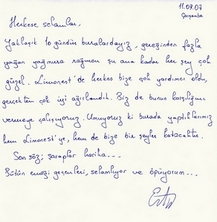 11.09.07
Çarşamba
Herkese selamlar.
Yaklaşık 10 gündür buralardayız, güneşinden fazla
yağan yağmura rağmen şu ana kadar her şey çok
güzel. Limonest'de herkes bize çok yardımcı oldu,
gerçekten çok iyi ağırlandık. Biz de bunun karşılığını
vermeye çalışıyoruz. Umuyoruz ki burada yaptıklarımız
hem Limonest'ye, hem de bize bir şeyler katacaktır.
Son söz; şaraplar harika...
Bütün emeği geçenleri, selamlıyor ve öpüyorum...